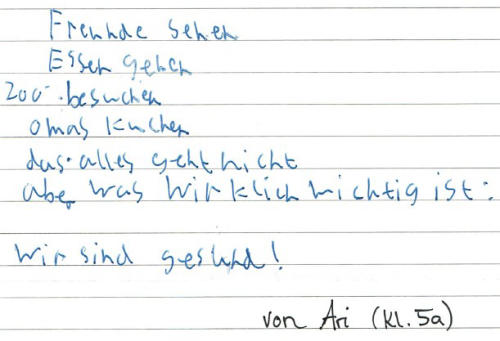 Freunde sehen
Essen gehen
Zoo besuchen
omas kuchen
das alles geht nicht
aber was wirklich wichtig ist:
wir sind gesund!
von Ari (Kl. 5a)